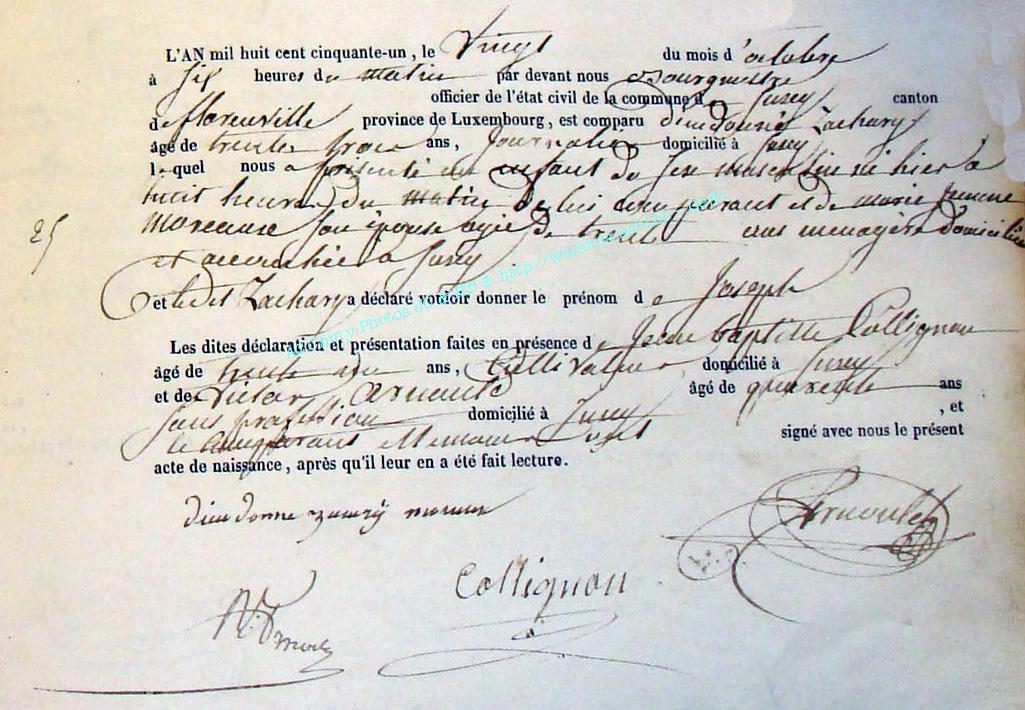 L'AN mil huit cent cinquante-un, le Vingt du mois d'octobre
à Six heures du matin par devant nous Bourgmestre
officier de l'état civil de la commune de Suxy canton
de florenville province de Luxembourg, est comparu dieudonné Zachary
âgé de trente trois ans, Journalier domicilié à Suxy
lequel nous a présenté un enfant du sexe masculin né hier à
huit heures du matin de lui comparant et de marie Jeanne
25 moreaux son épouse agée de trente ans menagère domiciliée
et accouchée à Suxy
et ledit Zachary a déclaré vouloir donner le prénom de Joseph
Les dites déclaration et présentation faites en présence de Jean baptiste Collignon
âgé de trente ans, Cultivateur domicilié à Suxy
et de Victor Arnould âgé de quarente ans
sans profession domicilié à Suxy , et
le comparant et temoins ont signé avec nous le présent
acte de naissance, après qu'il leur en a été fait lecture.
dieudonne
Arnoulet
Collignon